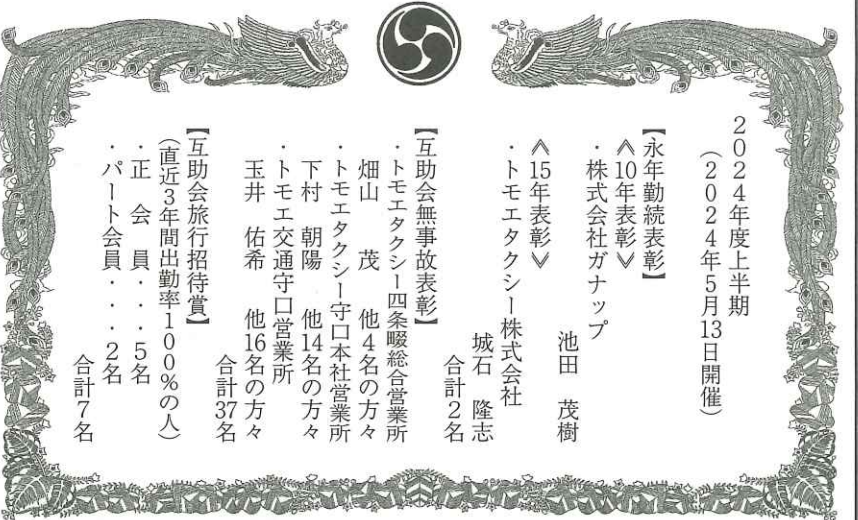 2024年度上半期
(2024年5月13日開催)
【永年勤続表彰】
≪10年表彰≫
・株式会社ガナップ
池田 茂樹
≪15年表彰≫
・トモエタクシー株式会社
城石 隆志
合計2名
【互助会無事故表彰】
・トモエタクシー四条畷総合営業所
畑山 茂 他4名の方々
・トモエタクシー守口本社営業所
下村 朝陽 他14名の方々
・トモエ交通守口営業所
玉井 佑希 他16名の方々
合計37名
【互助会旅行招待賞】
(直近3年間出勤率100%の人)
・正会員・・・5名
・パート会員・・・2名
合計7名